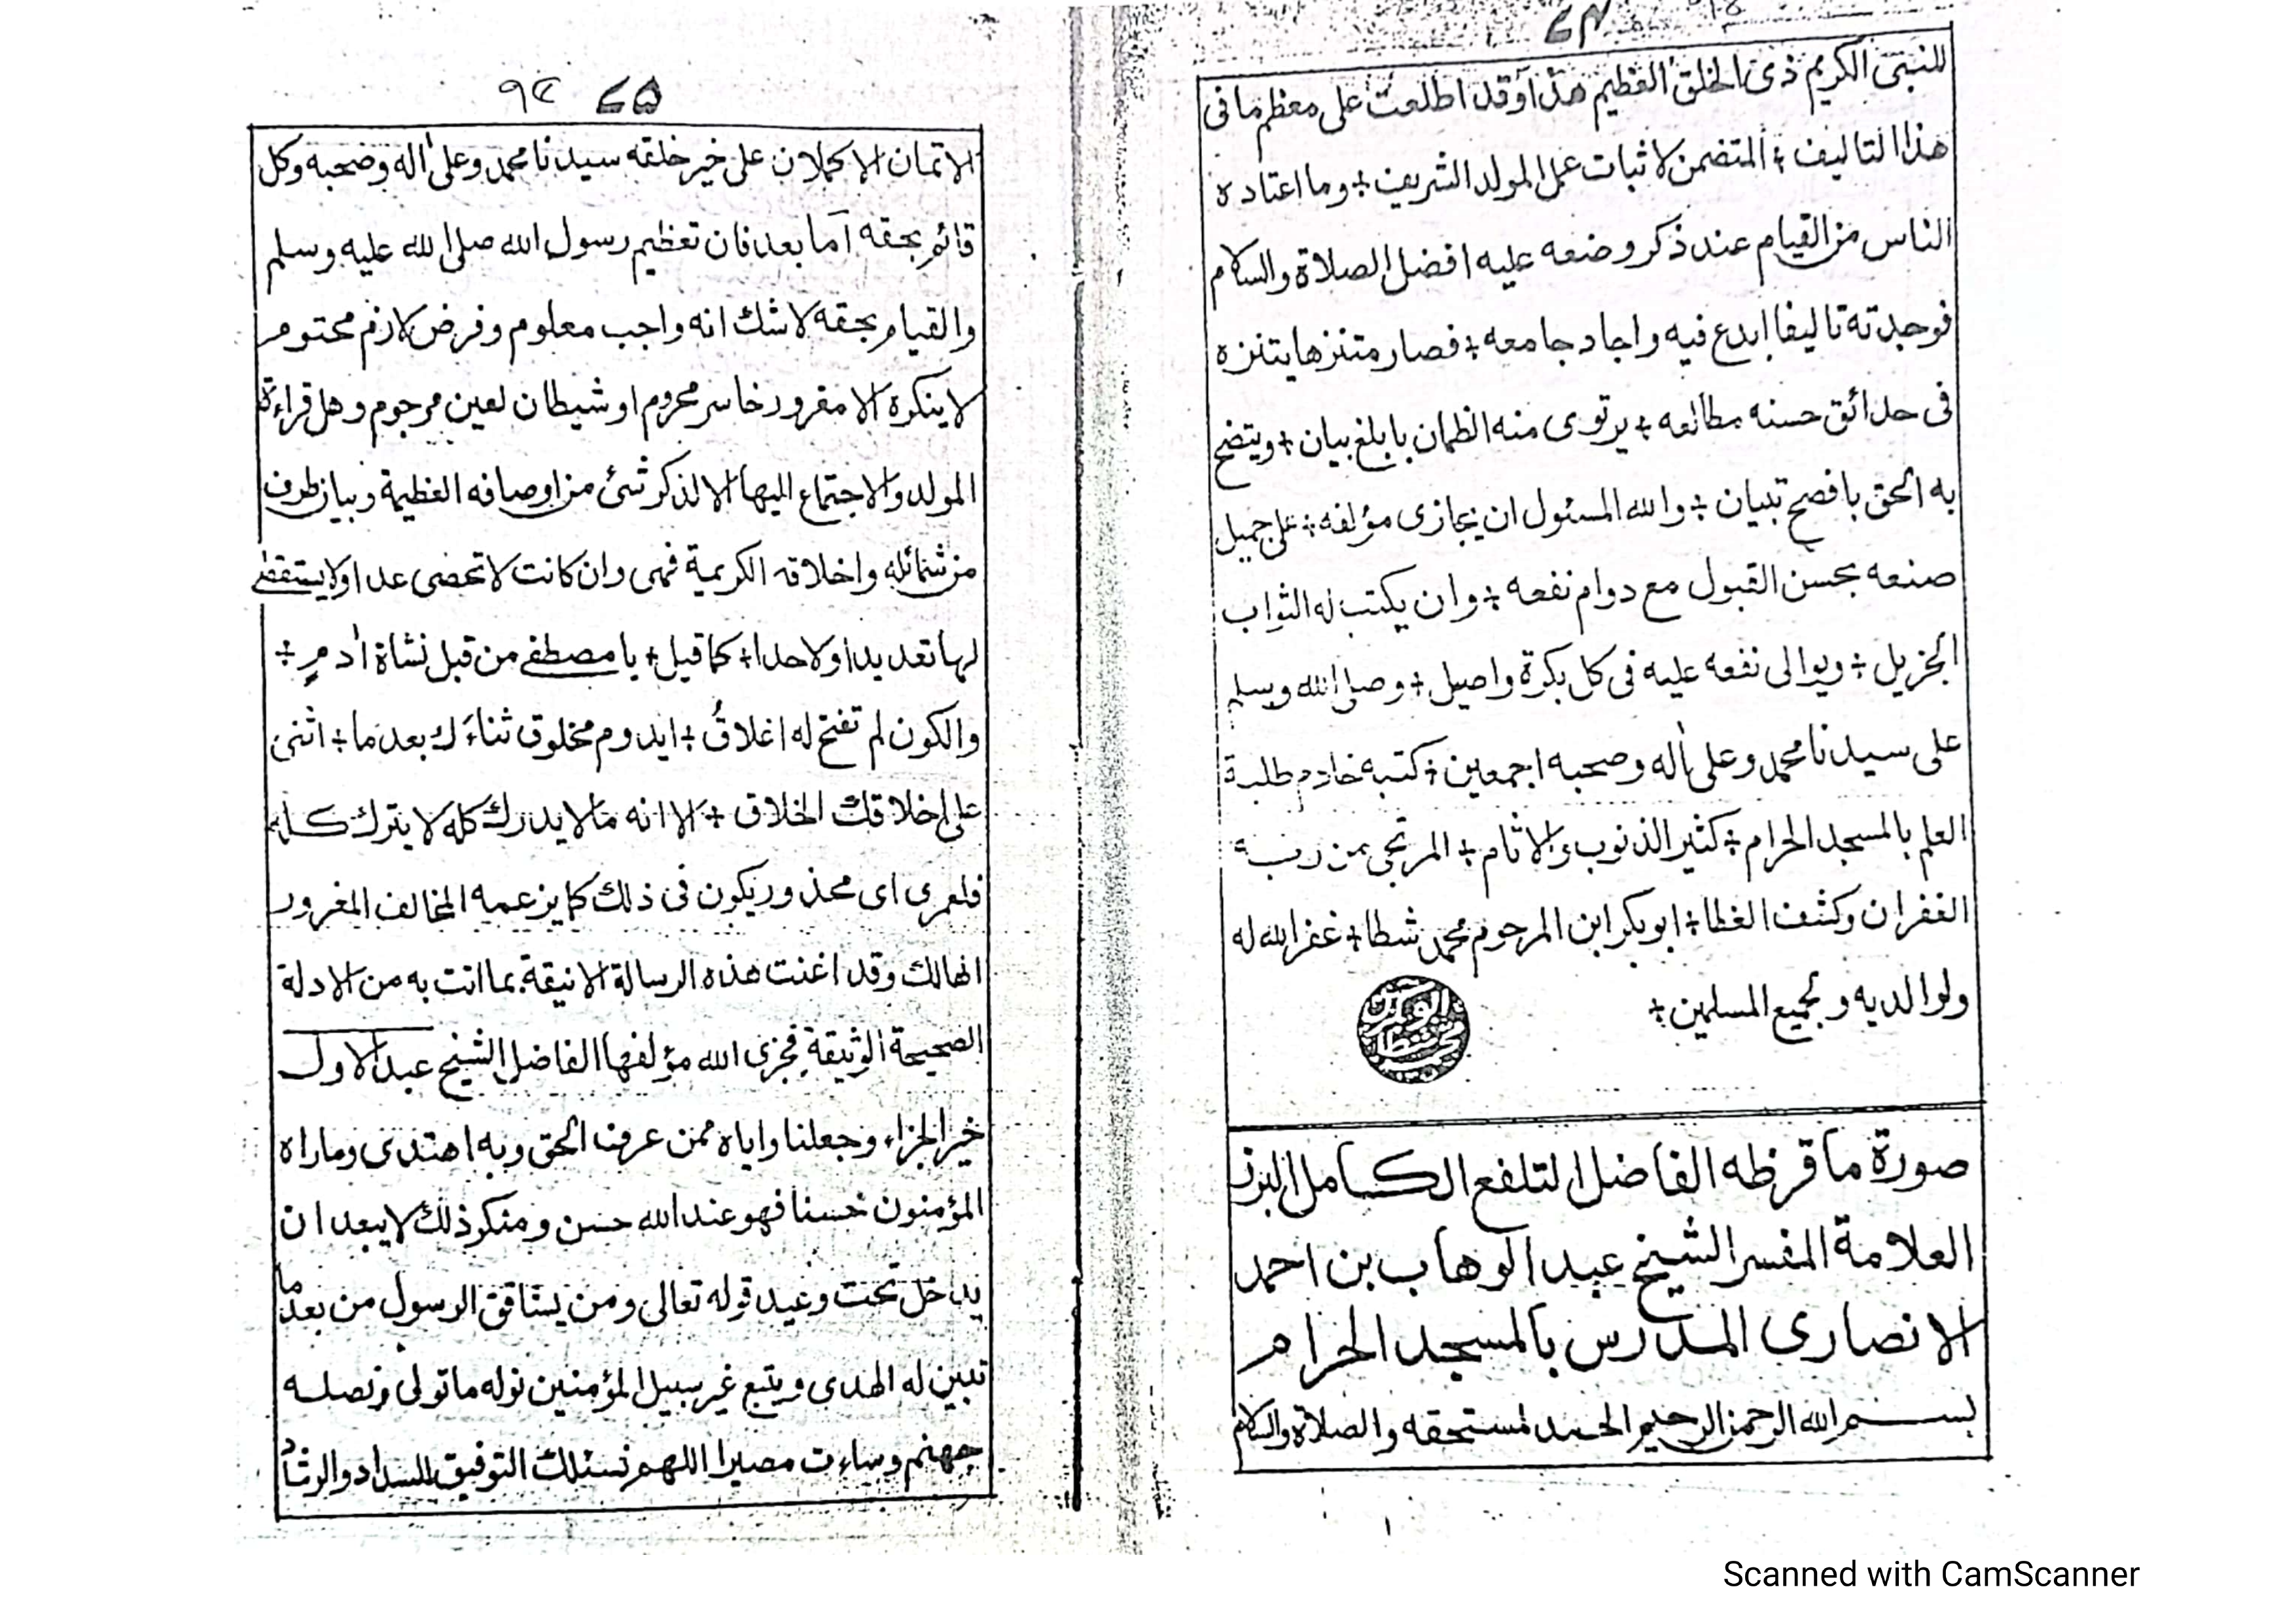 ٧٤
للنبى الكريم ذى الخلق العظيم هذا وقد اطلعت على معظم ما فى
هذا التاليف ÷ المتضمن لاثبات عمل المولد الشريف ÷ وما اعتاده
الناس من القيام عند ذكر وضعه عليه افضل الصلاة والسلام
فوجدته تاليفا ابدع فيه واجاد جامعه ÷ فصار متنزها يتنزه
فى حدائق حسنه مطالعه ÷ يرتوى منه الظمان بابلغ بيان ÷ ويتضح
به الحق بافصح تبيان ÷ والله المسئول ان يجازى مؤلفه ÷ على جميل
صنعه بحسن القبول مع دوام نفعه ÷ وان يكتب له الثواب
الجزيل ÷ ويوالى نفعه عليه فى كل بكرة واصيل ÷ وصلى الله وسلم
على سيدنا محمد وعلى اٰله وصحبه اجمعين ÷ كتبه خادم طلبة
العلم بالمسجد الحرام ÷ كثير الذنوب والاثام ÷ المرتجى من ربه
الغفران وكشف الغطا ÷ ابو بكر ابن المرحوم محمد شطا ÷ غفر الله له
ولوالديه ولجميع المسلمين ÷
صورة ما قرظه الفاضل التلفع الكامل
العلامة المفسر الشيخ عبد الوهاب بن احمد
الانصارى المدرس بالمسجد الحرام
بسم الله الرحمن الرحيم الحمد لمستحقه والصلاة والسلام
٧٥ ٩٤
الاتمان الاكملان على خير خلقه سيدنا محمد وعلى اٰله وصحبه وكل
قائم بحقه اما بعد فان تعظيم رسول الله صلى الله عليه وسلم
والقيام بحقه لاشك انه واجب معلوم وفرض لازم محتوم
لاينكره الا مغرور خاسر محروم او شيطان لعين مرجوم وهل قراءة
المولد والاجتماع اليها الا لذكر شئ من اوصافه العظيمة وبيان طرف
من شمائله واخلاقه الكريمة فهى وان كانت لاتحصى عدا ولا يستقصى
لها تعديدا ولاحدا ÷ كما قيل ÷ يا مصطفے من قبل نشاة اٰدم ÷
والكون لم تفتح له اغلاقُ ÷ ايدوم مخلوق ثناءَك بعد ما ÷ اثنى
على اخلاقك الخلاق ÷ الا انه مالا يدرك كله لا يترك كله
فلعمرى اى محذور يكون فى ذلك كما يزعمه المخالف المغرور
الهالك وقد اغنت هذه الرسالة الانيقة بما اتت به من الادلة
الصحيحة الوثيقة فجزى الله مؤلفها الفاضل الشيخ عبد الاول
خير الجزاء وجعلنا واياه ممن عرف الحق وبه اهتدى وماراه
المؤمنون حسنا فهو عند الله حسن ومنكر ذلك لايبعد ان
يدخل تحت وعيد قوله تعالى ومن يشاقق الرسول من بعد ما
تبين له الهدى ويتبع غير سبيل المؤمنين نوله ما تولى ونصله
جهنم وساءت مصيرا اللهم نسئلك التوفيق للسداد والرشاد
Scanned with CamScanner